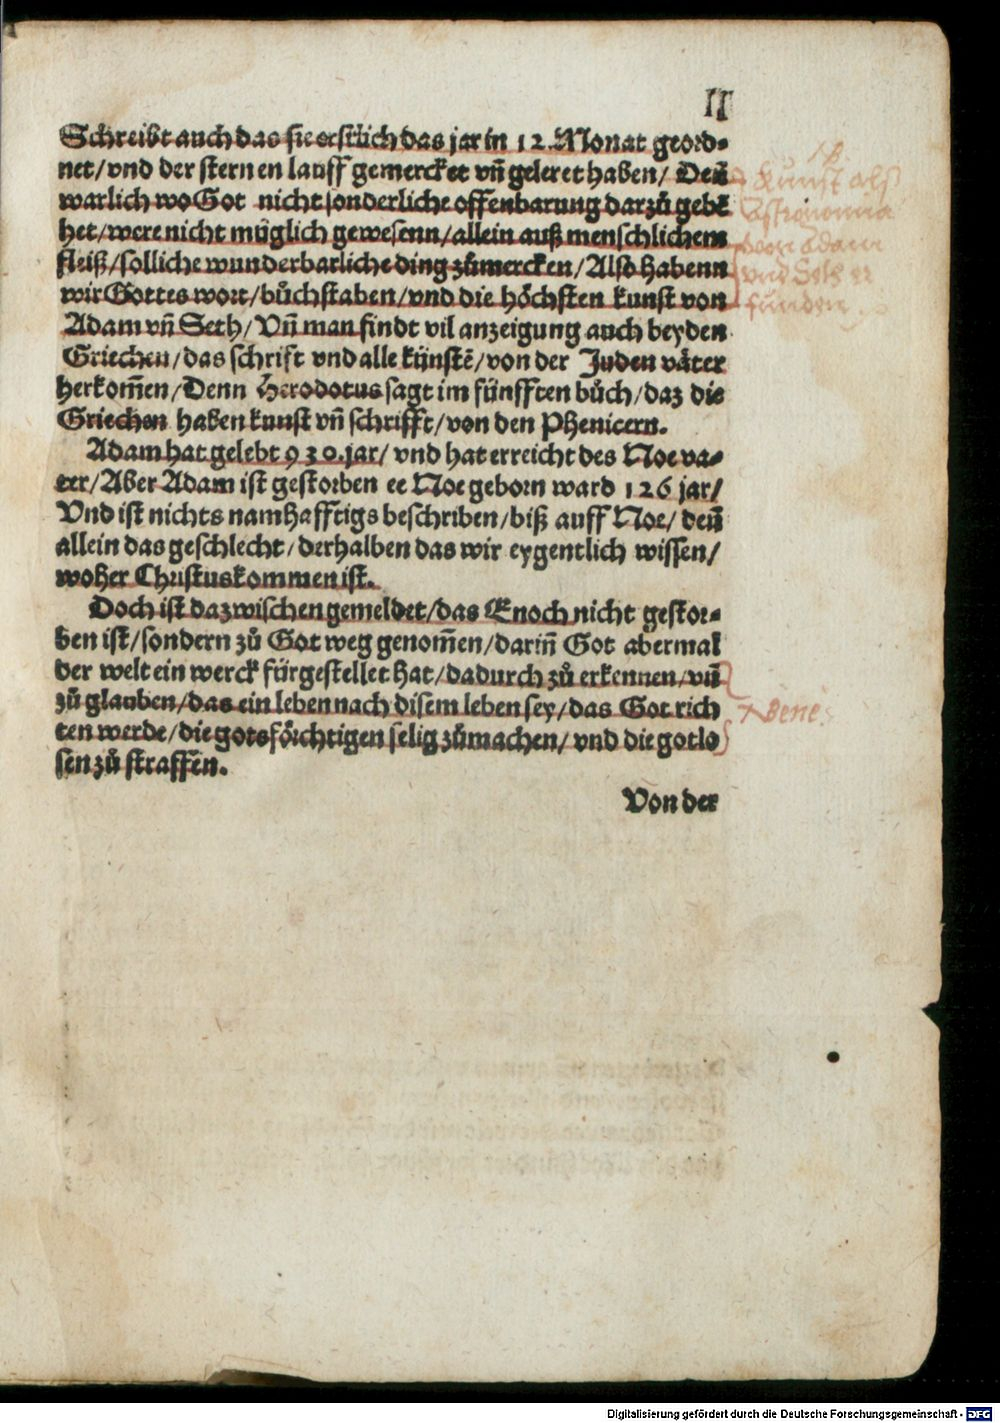 II
Schreibt auch das sie erstlich das jar in 12. Monat geord⸗
net/vnd der sternen lauff gemercket vñ geleret haben/ Deñ
warlich wo Got nicht sonderliche offenbarung darzů gebē
het/were nicht müglich gewesenn/allein auß menschlichem
fleiß/solliche wunderbarliche ding zůmercken/Also habenn
wir Gottes wort/bůchstaben/vnd die höchsten kunst von
Adam vñ Seth/Vñ man findt vil anzeigung auch bey den
Griechen/das schrift vnd alle künstē/von der Juden väter
herkom̄en/Denn Herodotus sagt im fünfften bůch/daz die
Griechen haben kunst vñ schrifft/von den Phenicern.
Adam hat gelebt 930. jar/ vnd hat erreicht des Noe va⸗
ter/Aber Adam ist gestorben ee Noe geborn ward 126 jar/
Vnd ist nichts namhafftigs beschriben/biß auff Noe/ deñ
allein das geschlecht/derhalben das wir eygentlich wissen/
woher Christus kommen ist.
Doch ist dazwischen gemeldet/das Enoch nicht gestor⸗
ben ist/sondern zů Got weg genom̄en/dariñ Got abermal
der welt ein werck fürgestellet hat/dadurch zů erkennen/vñ
zů glauben/das ein leben nach disem leben sey/das Got rich
ten werde/die gotsförchtigen selig zůmachen/vnd die gotlo
sen zů straffen.
Von der
Kunst als
Astronomia
von Adam
vnd Seth er
funden.
Bene.
Digitalisierung gefördert durch die Deutsche Forschungsgemeinschaft - DFG